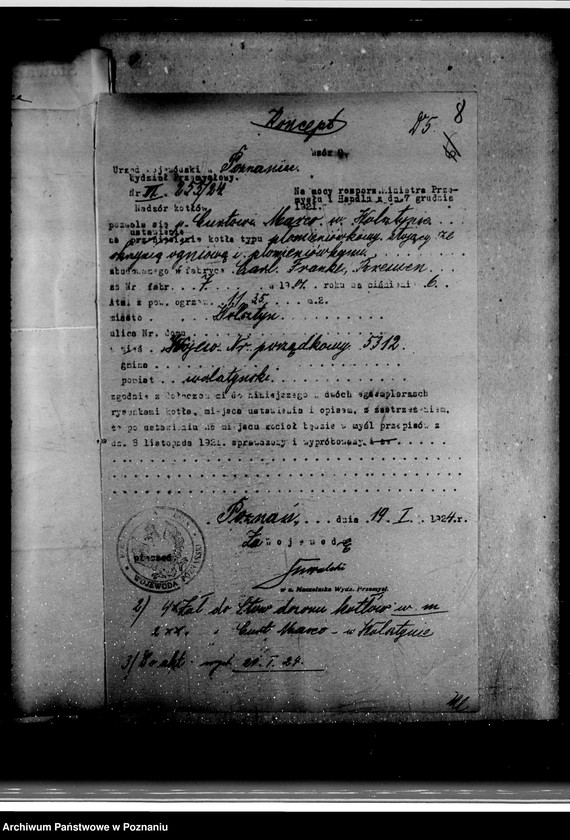 Koncept
D5. 8
Wzór 9.
Urząd Wojewódzki w Poznaniu.
Wydział Przemysłowy.
Nr VI. 253/24
Nadzór kotłów.
Na mocy rozporz. Ministra Prze-
mysłu i Handlu z dn. 7 grudnia
1921.
pozwala się p. Curtowi Marco w Wolsztynie
ustawienie
na przedsięwzięcie kotła typu płomieniówkowy, stojący ze
skrzynią ogniową i płomieniówkami
zbudowanego w fabryce Carl Franke, Bremen
za Nr fabr. 7 w 19 roku na ciśnieni 6
Atm. z pow. ogrzew. 11,25 m.2.
miasto Wolsztyn
ulica Nr. domu
Nr. porządkowy 5312.
gmina
powiat wolsztyński
zgodnie z dołączonymi do niniejszego w dwóch egzemplarzach
rysunkami kotła, miejsca ustawienia i opisem, z zastrzeżeniem,
że po ustawieniu na miejscu kocioł będzie w myśl przepisów z
dn. 8 listopada 1921. sprawdzony i wypróbowany
Poznań, dnia 19. I. 1924 r.
Za Wojewodę
pieczęć
WOJEWODA POZNAŃSKI
w z. Naczelnika Wydz. Przemysł.
2) Zał do Stow dozoru kotłów w m
i Curt Marco - w Wolsztynie
3) Do akt. 21. I. 24.
Archiwum Państwowe w Poznaniu